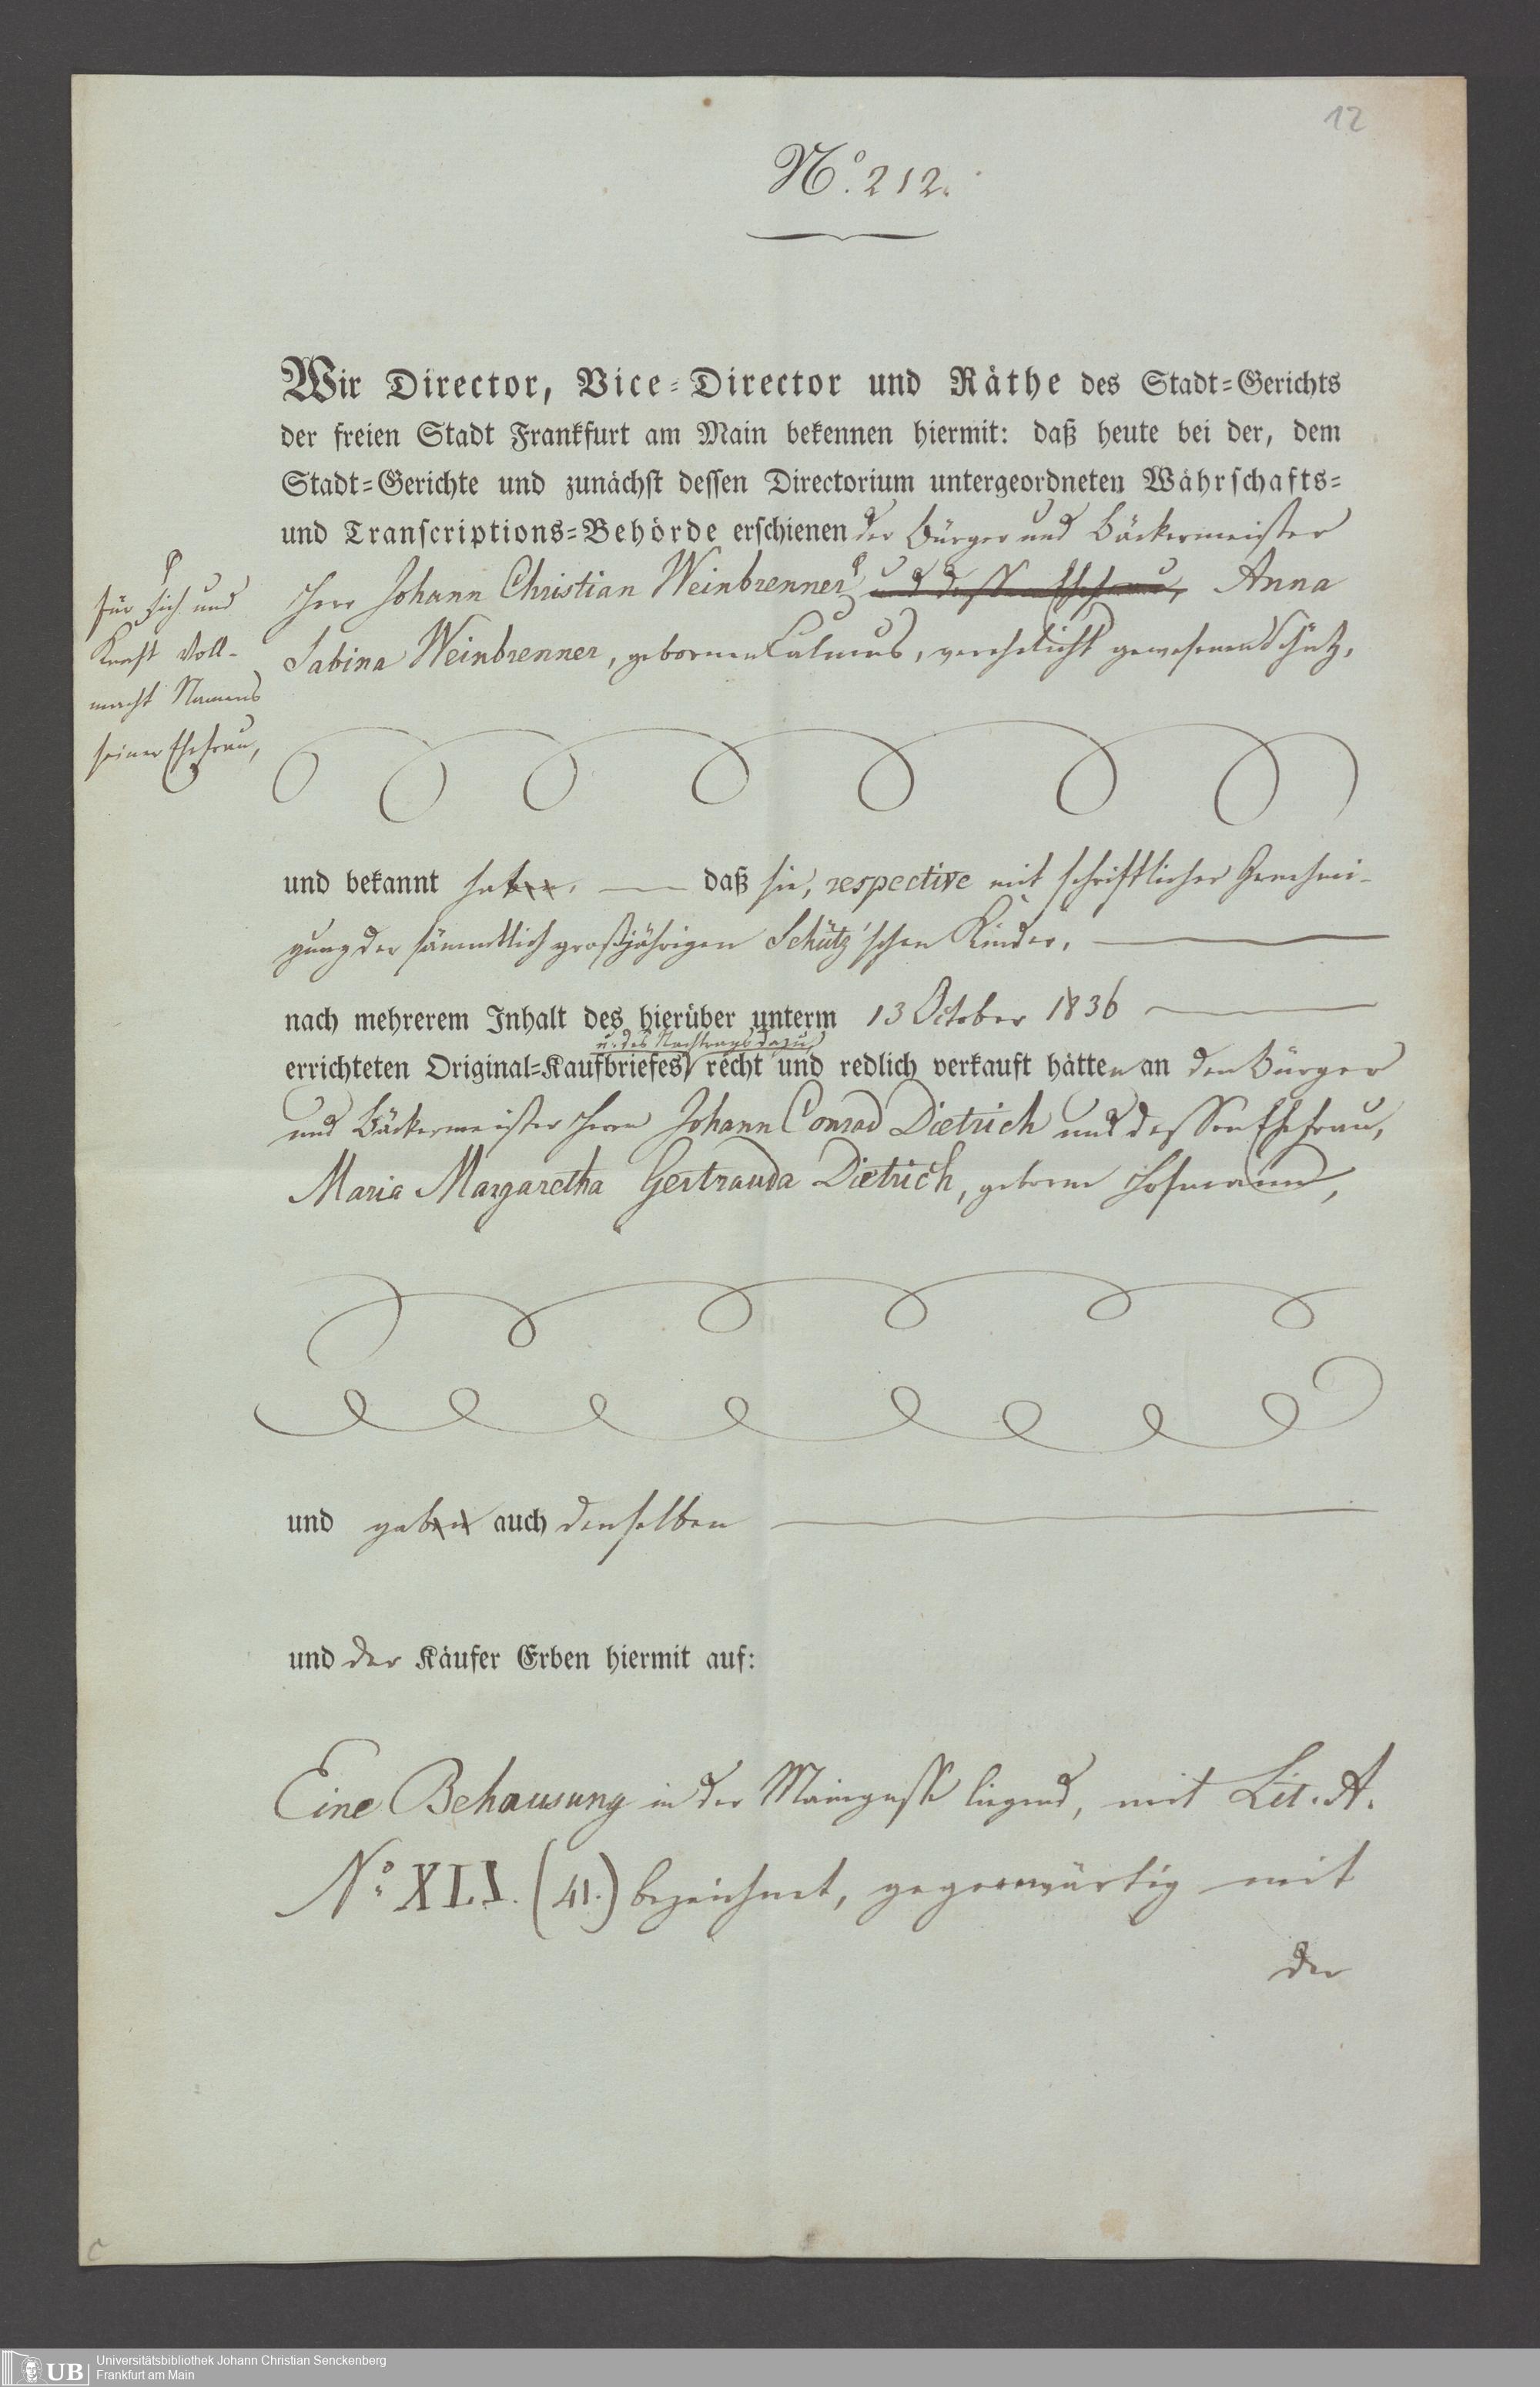 12
No. 212.
Wir Director, Vice-Director und Räthe des Stadt-Gerichts
der freien Stadt Frankfurt am Main bekennen hiermit: daß heute bei der, dem
Stadt-Gerichte und zunächst dessen Directorium untergeordneten Währschafts-
und Transcriptions-Behörde erschienen der Bürger und Bäckermeister
Herr Johann Christian Weinbrenner und dessen Ehefrau, Anna
Sabina Weinbrenner, gebornen Calmus, verehelicht gewesenen Schütz,
für sich und
Kraft Voll-
macht Namens
seiner Ehefrau,
und bekannt haben, daß sie, respective mit schriftlicher Genehmi-
gung der sämmtlich großjährigen Schütz'schen Kinder,
nach mehrerem Inhalt des hierüber unterm 13 October 1836
u. des Nachtrags dazu,
errichteten Original-Kaufbriefes recht und redlich verkauft hätten an den Bürger
und Bäckermeister Herrn Johann Conrad Dietrich und dessen Ehefrau,
Maria Margaretha Gertrauda Dietrich, geborne Hofmann,
und gaben auch denselben
und der Käufer Erben hiermit auf:
Eine Behausung in der Maingasse liegend, mit Lit. A.
No. XLI. (41.) bezeichnet, gegenwärtig mit
der
C
UB
Universitätsbibliothek Johann Christian Senckenberg
Frankfurt am Main